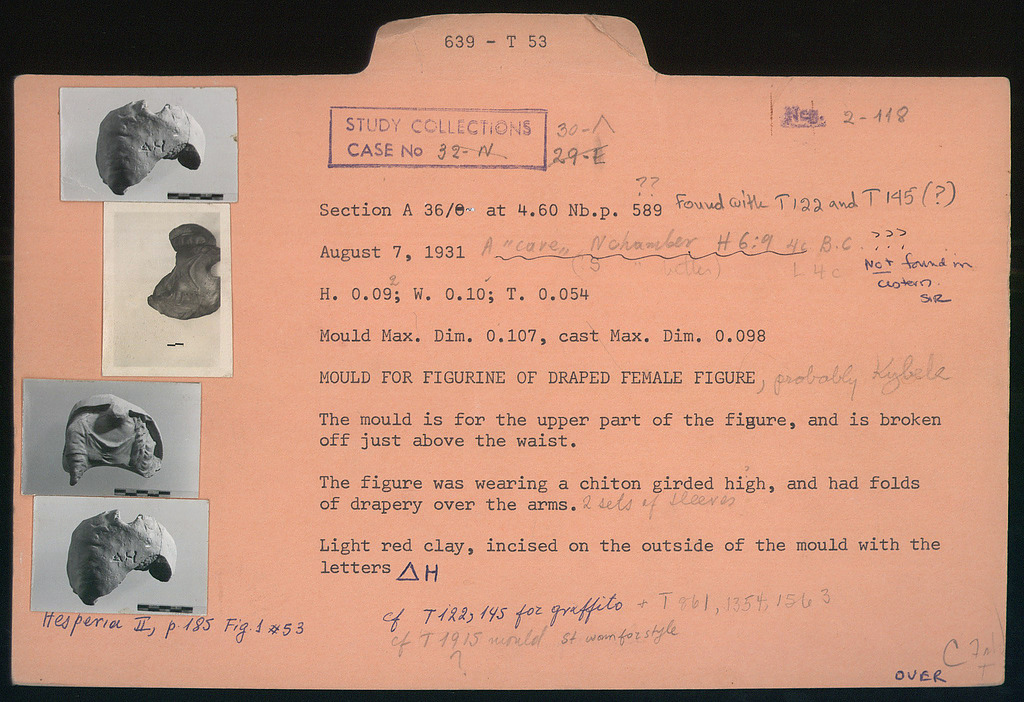 639 - T 53
STUDY COLLECTIONS
CASE No 32-N
30-Λ
29-E
Neg. 2-118
??
Section A 36/ at 4.60 Nb.p. 589 Found with T122 and T145(?)
August 7, 1931 A "cave" N chamber H 6:9 4c B.C.
L 4 c
???
Not found in
cistern.
SIR
H. 0.09; W. 0.10; T. 0.054
2
Mould Max. Dim. 0.107, cast Max. Dim. 0.098
MOULD FOR FIGURINE OF DRAPED FEMALE FIGURE, probably Kybele
The mould is for the upper part of the figure, and is broken
off just above the waist.
The figure was wearing a chiton girded high, and had folds
of drapery over the arms. 2 sets of sleeves
Light red clay, incised on the outside of the mould with the
letters ΔH
cf T122, 145 for graffito + T 861, 1354, 1563
cf T 1915 mould st. wom for style
?
Hesperia II, p.185 Fig.1 #53
C
T
OVER